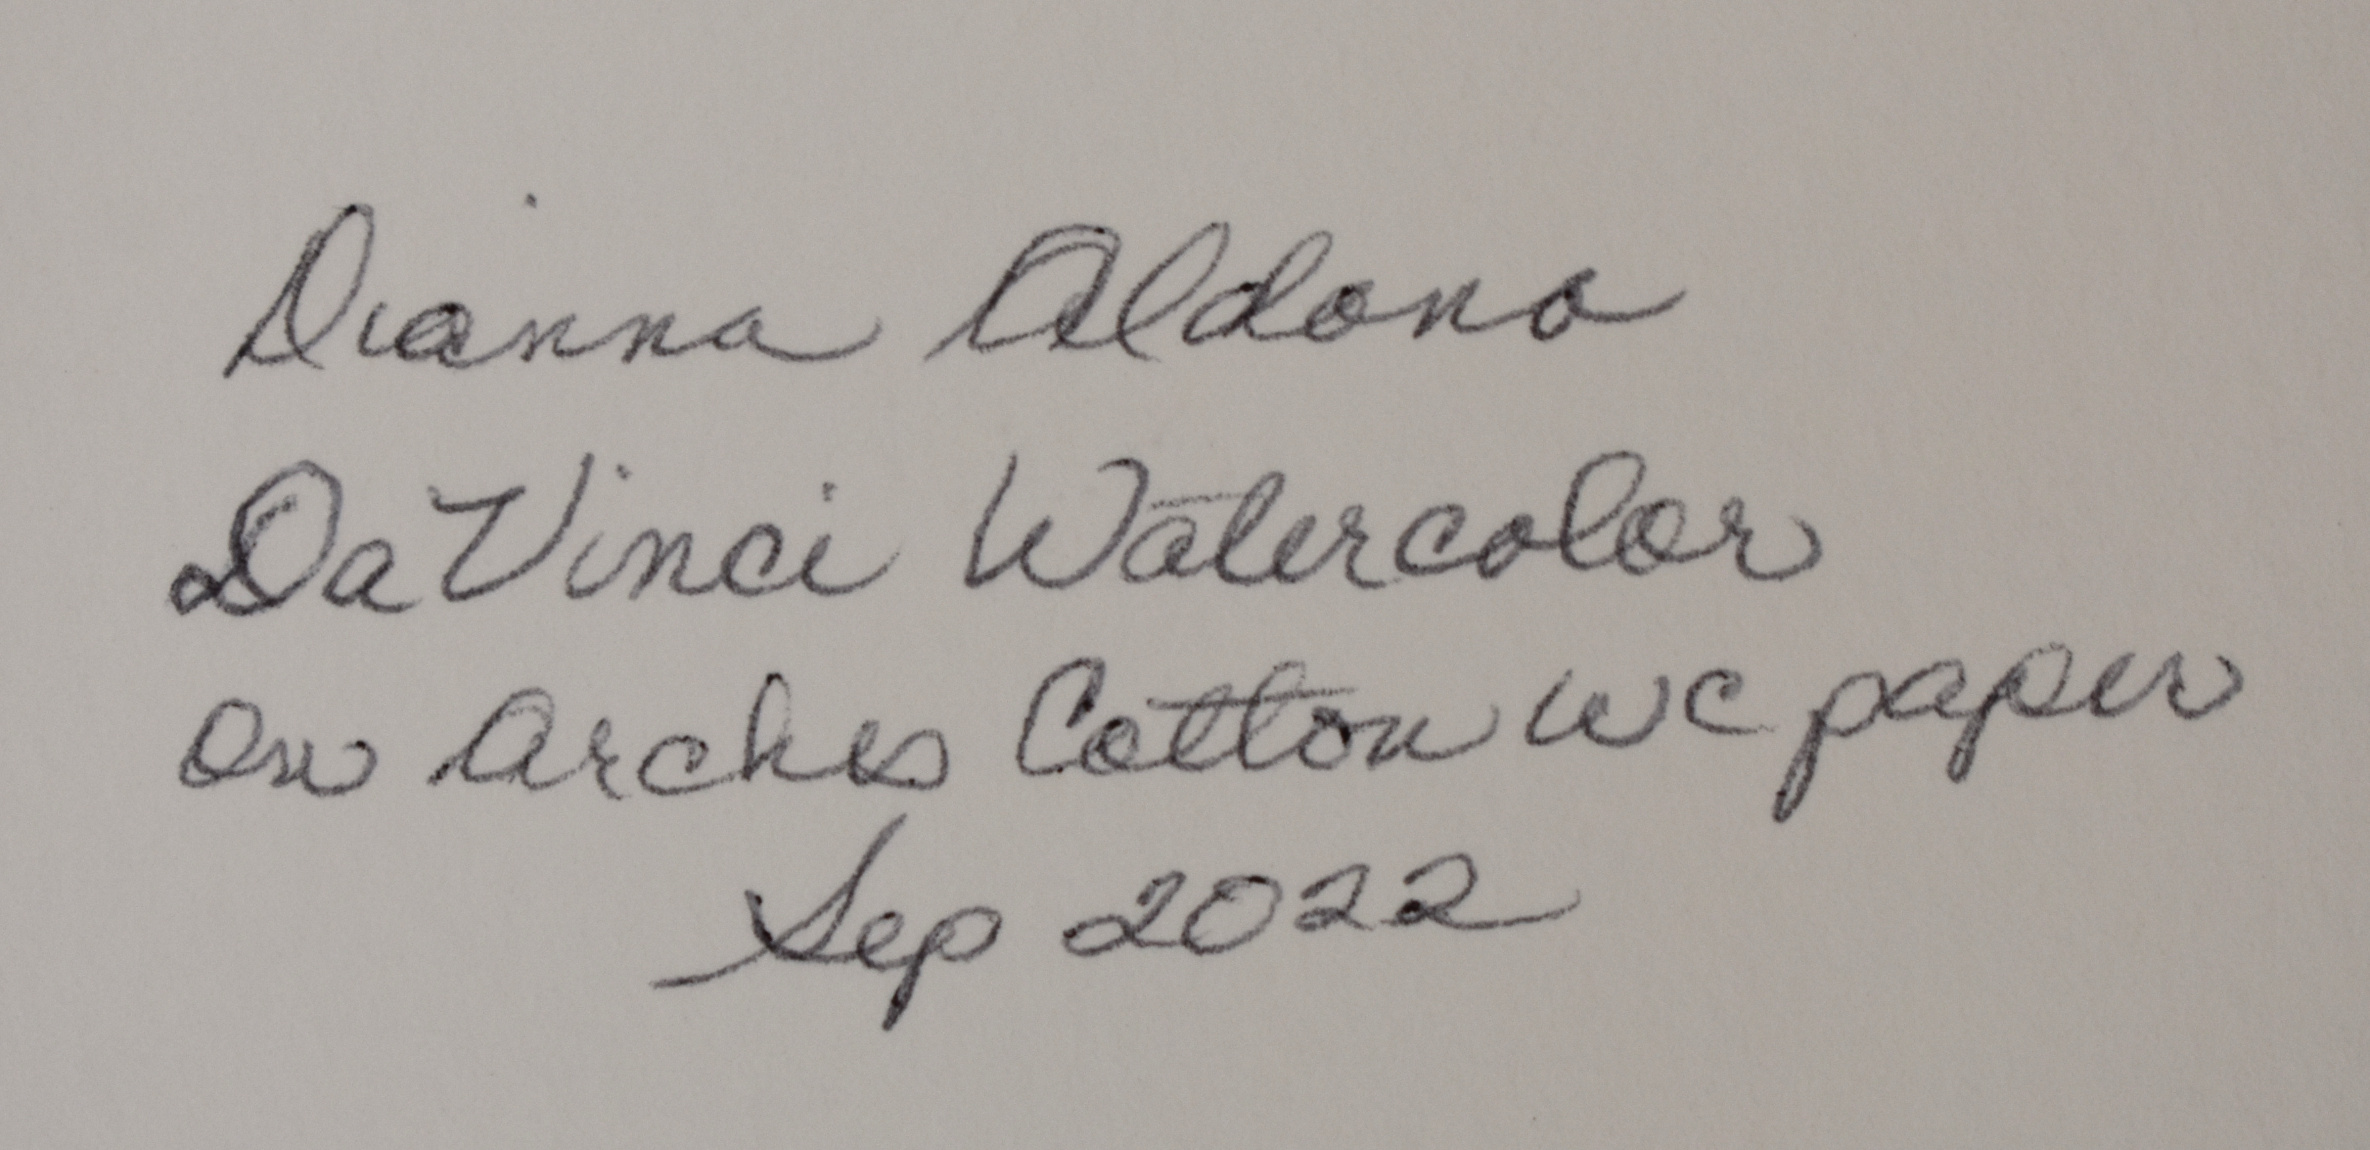 Dianna Aldona
DaVinci Watercolor
on Arches Cotton wc paper
Sep 2022